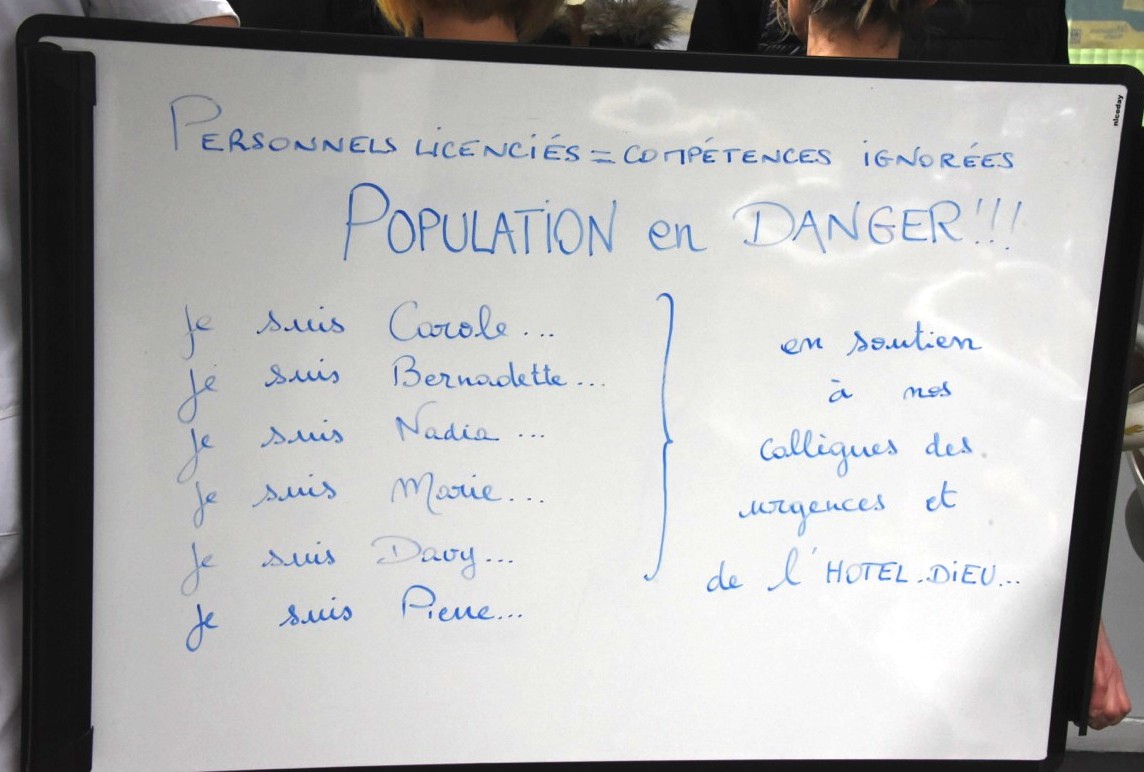 PERSONNELS LICENCIÉS = COMPÉTENCES IGNORÉES
POPULATION en DANGER!!!
Je suis Carole...
Je suis Bernadette...
Je suis Nadia...
Je suis Marie...
Je suis Davy...
Je suis Pierre...
en soutien
à nos
collègues des
urgences et
de l'HOTEL-DIEU...
niceday